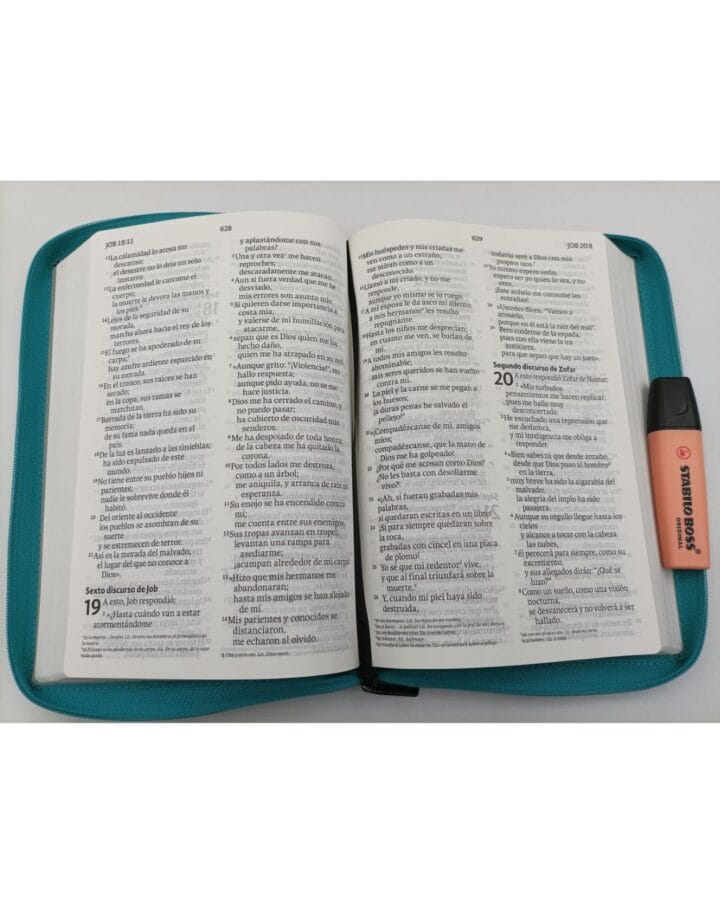 JOB 18:12
628
12 La calamidad lo acosa sin
descanso;
el desastre no lo deja un solo
instante.
13 La enfermedad le carcome el
cuerpo;
la muerte le devora las manos y
los pies.
14 Lejos de la seguridad de su
morada,
marcha ahora hacia el rey de los
terrores.
15 El fuego se ha apoderado de su
carpa;
hay azufre ardiente esparcido en
su morada.
16 En el tronco, sus raíces se han
secado;
en la copa, sus ramas se
marchitan.
17 Borrada de la tierra ha sido su
memoria;
de su fama nada queda en el
país.
18 De la luz es lanzado a las tinieblas;
ha sido expulsado de este
mundo.
19 No tiene entre su pueblo hijos ni
parientes;
nadie le sobrevive donde él
habitó.
20 Del oriente al occidente
los pueblos se asombran de su
suerte
y se estremecen de terror.
21 Así es la morada del malvado,
el lugar del que no conoce a
Dios».
Sexto discurso de Job
19 A esto, Job respondió:
2 «¿Hasta cuándo van a estar
atormentándome
y aplastándome con sus
palabras?
3 Una y otra vez me hacen
reproches;
descaradamente me atacan.
4 Aun si fuera verdad que me he
desviado,
mis errores son asunto mío.
5 Si quieren darse importancia a
costa mía,
y valerse de mi humillación para
atacarme,
6 sepan que es Dios quien me ha
hecho daño,
quien me ha atrapado en su red.
7 »Aunque grito: “¡Violencia!”, no
hallo respuesta;
aunque pido ayuda, no se me
hace justicia.
8 Dios me ha cerrado el camino, y
no puedo pasar;
ha cubierto de oscuridad mis
senderos.
9 Me ha despojado de toda honra;
de la cabeza me ha quitado la
corona.
10 Por todos lados me destroza,
como a un árbol;
me aniquila, y arranca de raíz mi
esperanza.
11 Su enojo se ha encendido contra
mí;
me cuenta entre sus enemigos.
12 Sus tropas avanzan en tropel;
levantan una rampa para
asediarme;
¡acampan alrededor de mi carpa!
13 »Hizo que mis hermanos me
abandonaran;
hasta mis amigos se han alejado
de mí.
14 Mis parientes y conocidos se
distanciaron,
me echaron al olvido.
629
JOB 20:8
15 Mis huéspedes y mis criadas me
ven como a un extraño,
me miran como a un
desconocido.
16 Llamo a mi criado, y no me
responde,
aunque yo mismo se lo ruego
17 A mi esposa le da asco mi aliento;
a mis hermanos les resulto
repugnante.
18 Hasta los niños me desprecian;
en cuanto me ven, se burlan de
mí.
19 A todos mis amigos les resulto
abominable;
mis seres queridos se han vuelto
contra mí.
20 La piel y la carne se me pegan a
los huesos;
¡a duras penas he salvado el
pellejo!
21 »¡Compadézcanse de mí, amigos
míos;
compadézcanse, que la mano de
Dios me ha golpeado!
22 ¿Por qué me acosan como Dios?
¿No les basta con desollarme
vivo?
23 »¡Ah, si fueran grabadas mis
palabras,
si quedaran escritas en un libro!
24 ¡Si para siempre quedaran sobre
la roca,
grabadas con cincel en una placa
de plomo!
25 Yo sé que mi redentor vive,
y que al final triunfará sobre la
muerte.
26 Y, cuando mi piel haya sido
destruida,
todavía veré a Dios con mis
propios ojos!
27 Yo mismo espero verlo;
espero ser yo quien lo vea, y no
otro.
¡Este anhelo me consume las
entrañas!
28 »Ustedes dicen: “Vamos a
acosarlo,
porque en él está la raíz del mal”.
29 Pero cuídense de la espada,
pues con ella viene la ira
justiciera,
para que sepan que hay un juez».
Segundo discurso de Zofar
20 A esto respondió Zofar de Namat:
2 «Mis turbados
pensamientos me hacen replicar,
pues me hallo muy
desconcertado.
3 He escuchado una reprensión que
me deshonra,
y mi inteligencia me obliga a
responder.
4 »Bien sabes tú que desde antaño,
desde que Dios puso al hombre
en la tierra,
5 muy breve ha sido la algarabía del
malvado;
la alegría del impío ha sido
pasajera.
6 Aunque su orgullo llegue hasta los
cielos
y alcance a tocar con la cabeza
las nubes,
7 él perecerá para siempre, como su
excremento,
y sus allegados dirán: “¿Qué se
hizo?”
8 Como un sueño, como una visión
nocturna,
se desvanecerá y no volverá a ser
hallado.
STABILO BOSS
ORIGINAL